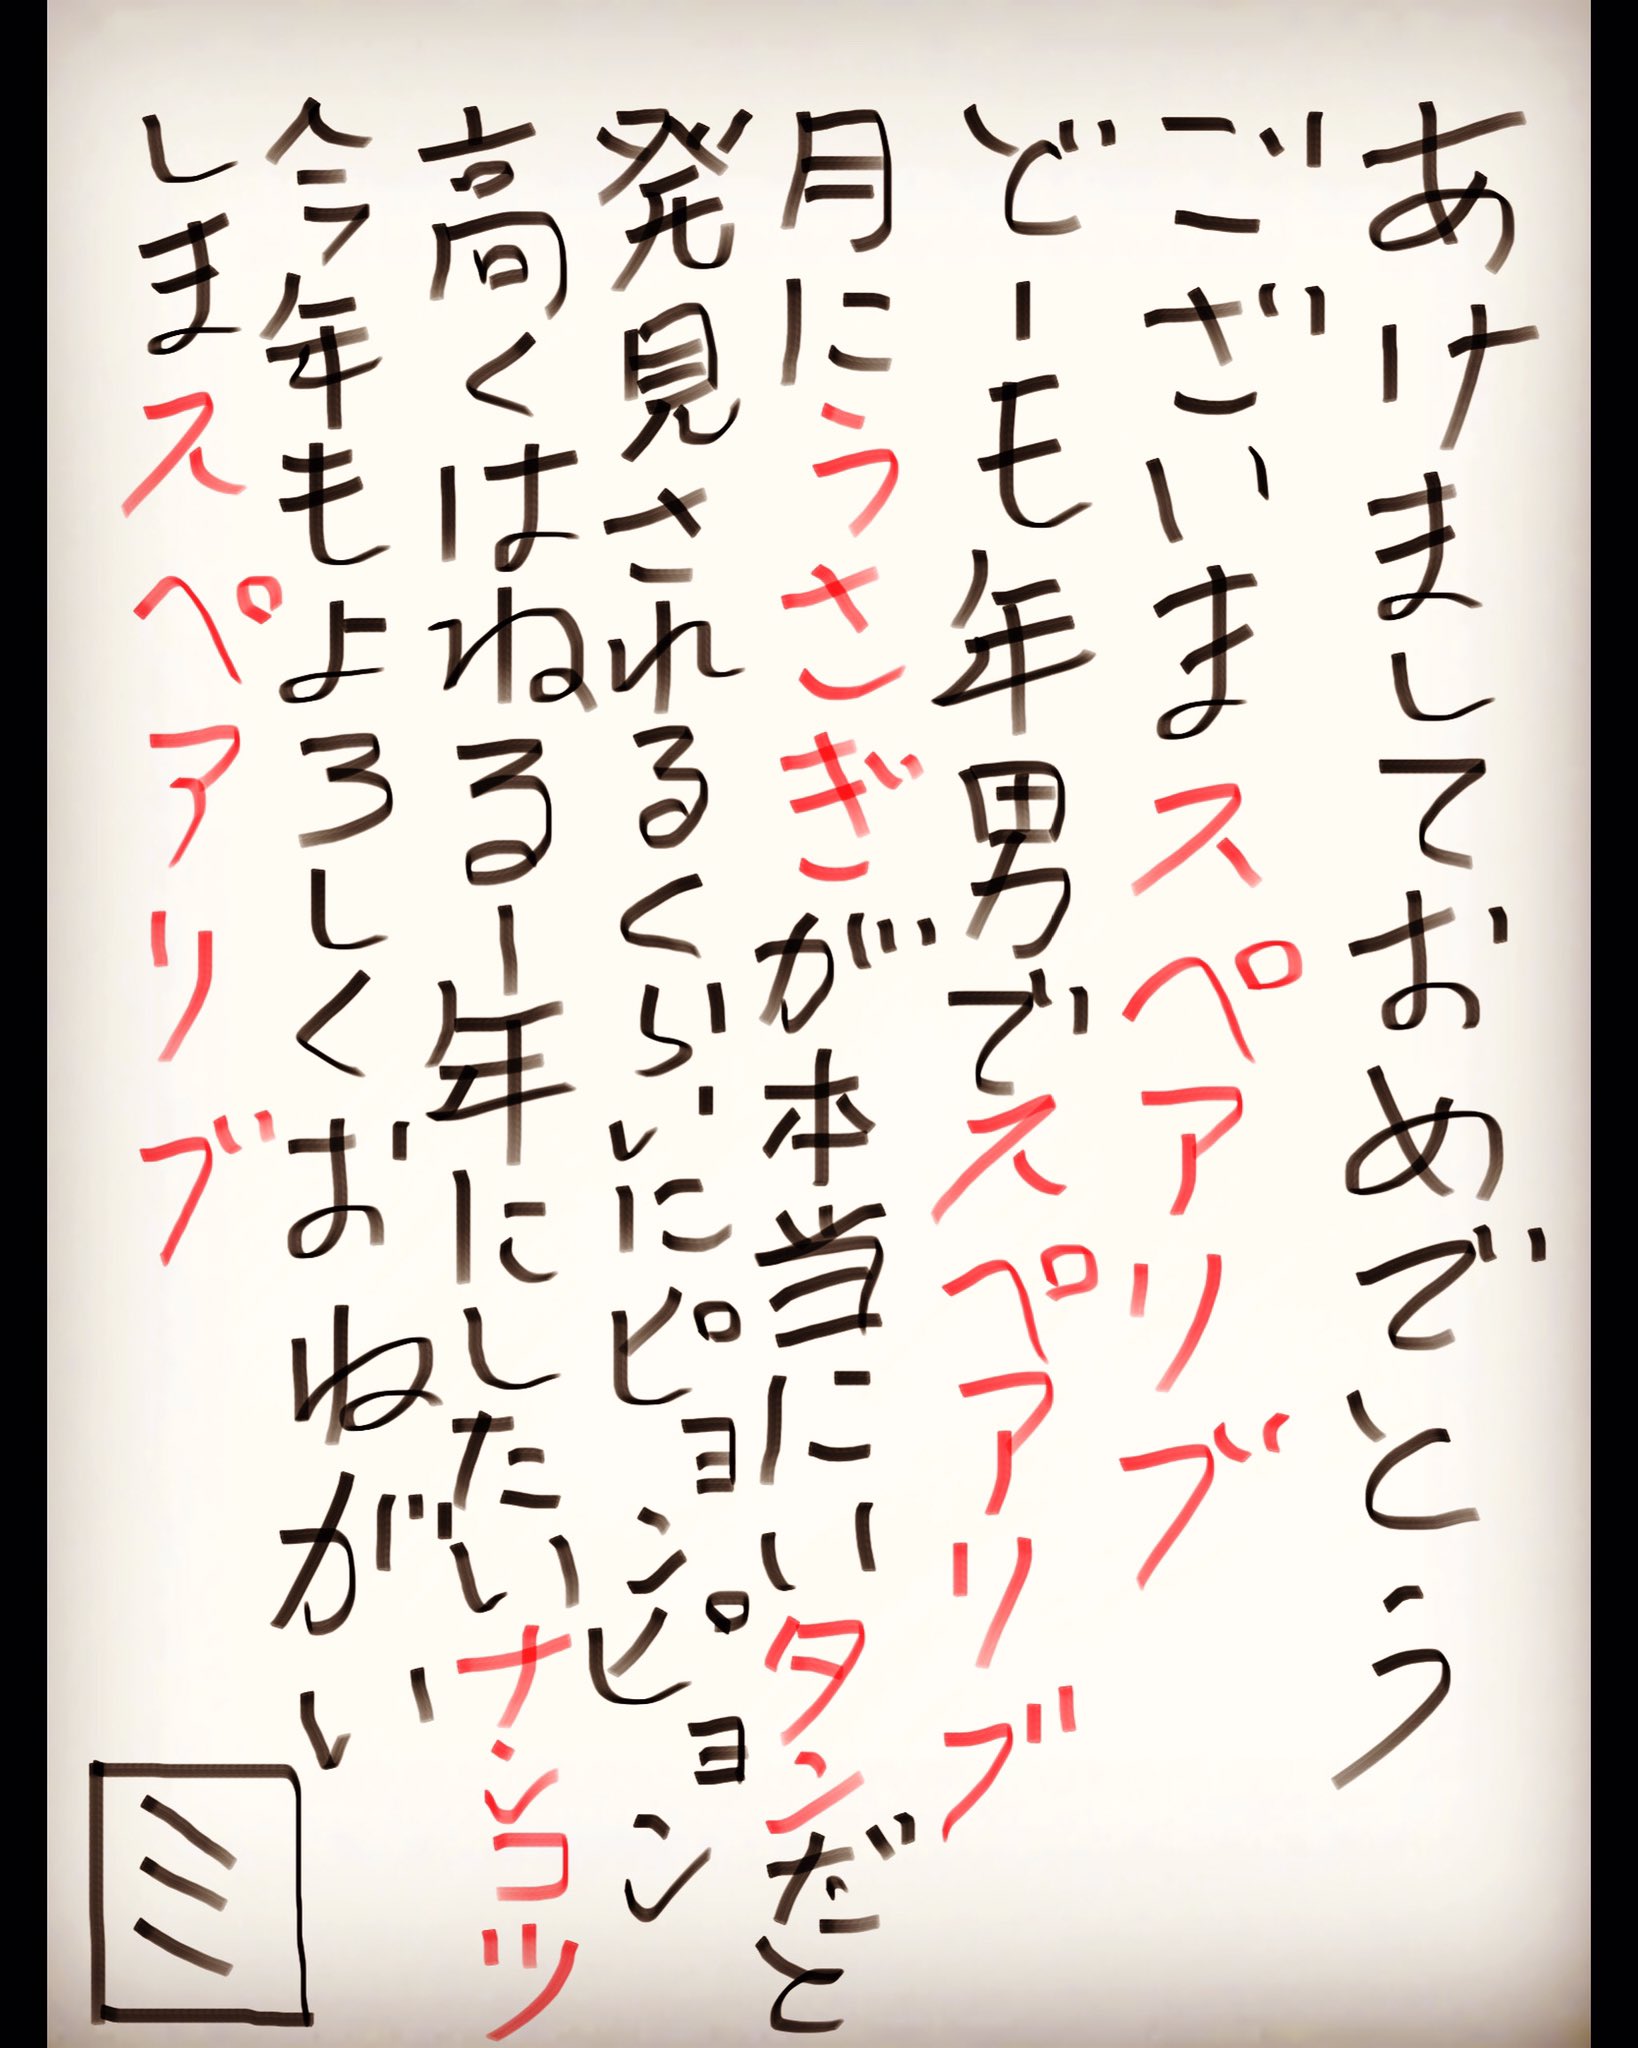 あけましておめでとう
ございまスペアリブ
どーも年男でスペアリブ
月にうさぎが本当にいタンだと
発見されるくらいにピョンピョン
高くはねる一年にしたいナンコツ
今年もよろしくおねがい
しまスペアリブ
ミ